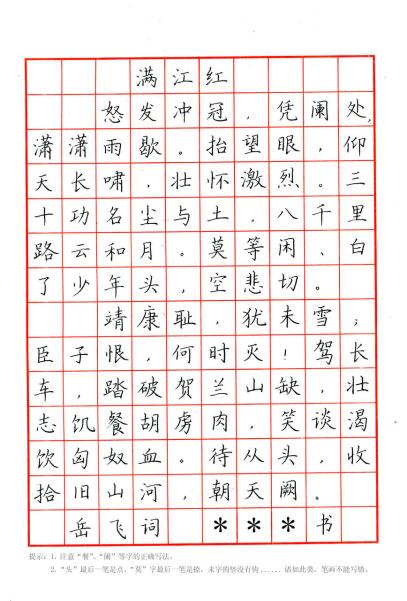 满江红
怒发冲冠,凭阑处,
潇潇雨歇。抬望眼,仰
天长啸,壮怀激烈。三
十功名尘与土,八千里
路云和月。莫等闲、白
了少年头,空悲切。
靖康耻,犹未雪;
臣子恨,何时灭!驾长
车,踏破贺兰山缺,壮
志饥餐胡虏肉,笑谈渴
饮匈奴血。待从头,收
拾旧山河,朝天阙。
岳飞词 ***书
提示:1.注意“餐”、“阑”等字的正确写法。
2.“头”最后一笔是点,“莫”字最后一笔是捺,未字的竖没有钩......诸如此类,笔画不能写错。